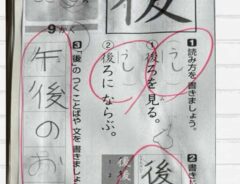 後
9かく
1 読み方を書きましょう。
① 後ろを見る。
うし
② 後ろにならぶ。
うし
2 書き
後
後後
3 「後」のつくことばや文を書きましょ
午後のお